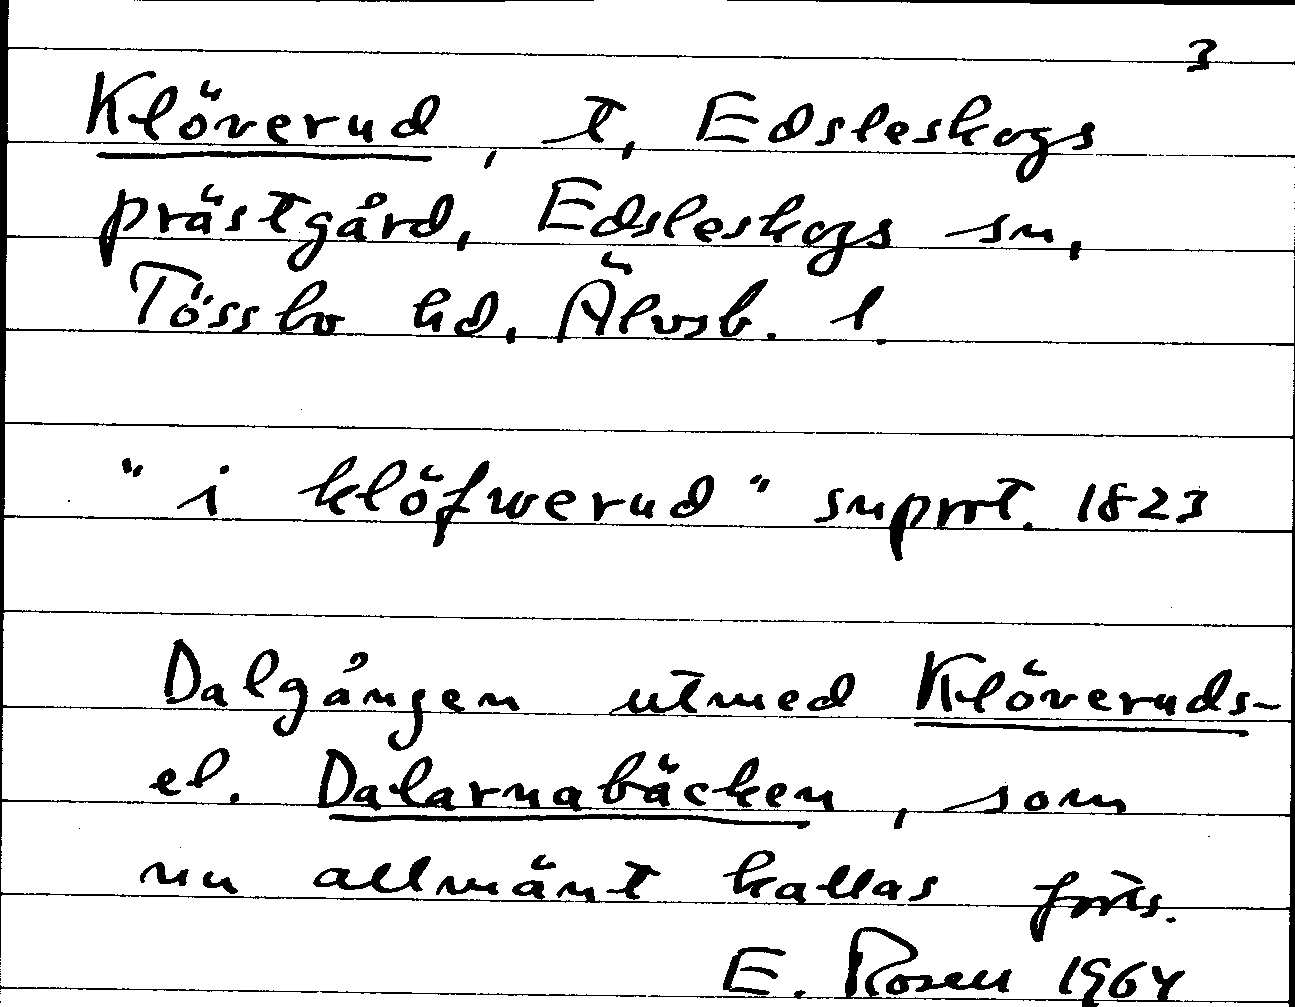 3
Klöverud, t, Edsleskogs
prästgård, Edsleskogs sn,
Tössbo hd, Älvsb. l.
"i klöfwerud" snprot. 1823
Dalgången utmed Klöveruds-
el. Dalarnabäcken, som
nu allmänt kallas forts.
E. Rosell 1964